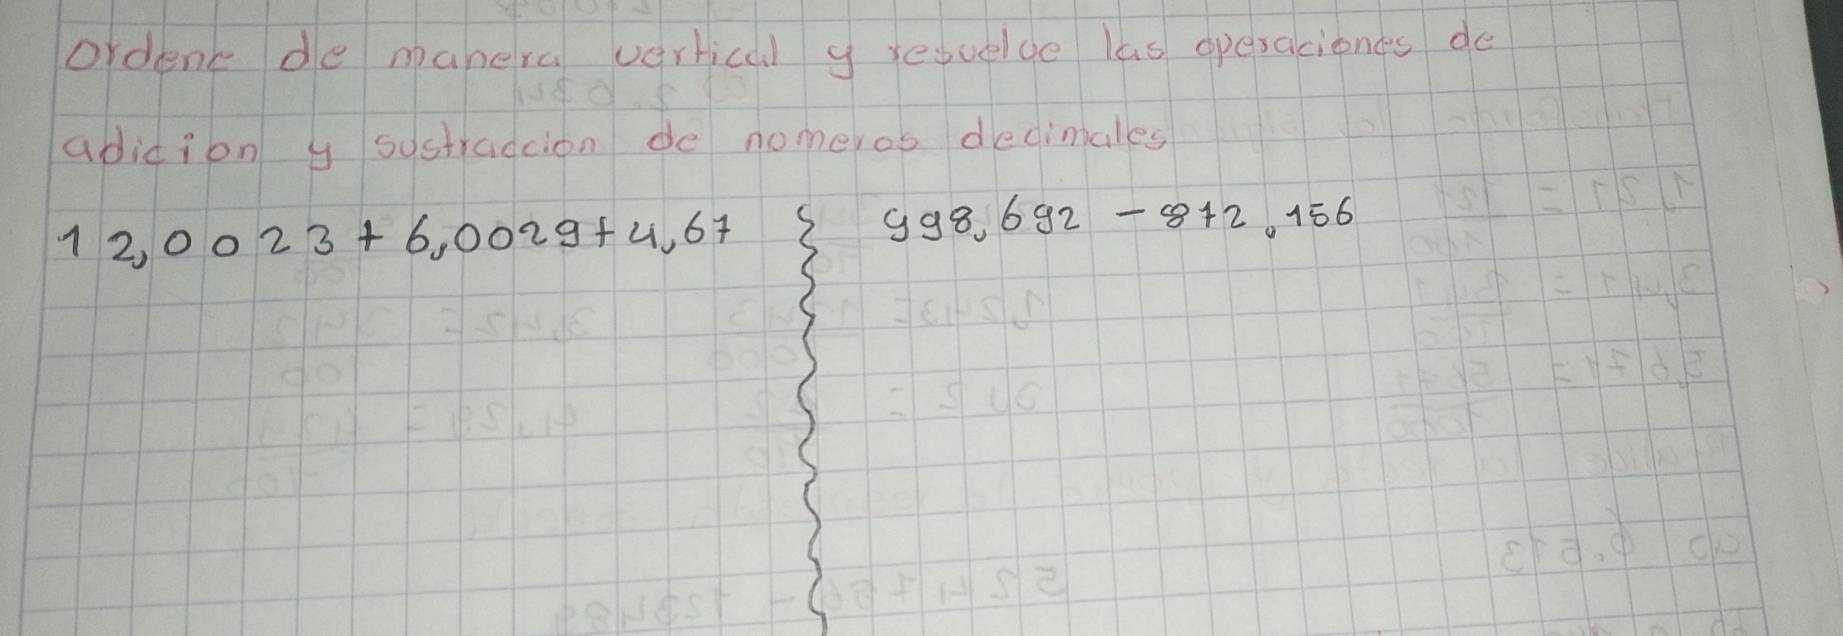 Ordene de manera vertical y resuelve las operaciones de
adicion y sustraccion de nomeros decimales
12,0023 + 6,0029 + 4,67
998,692 - 872,156